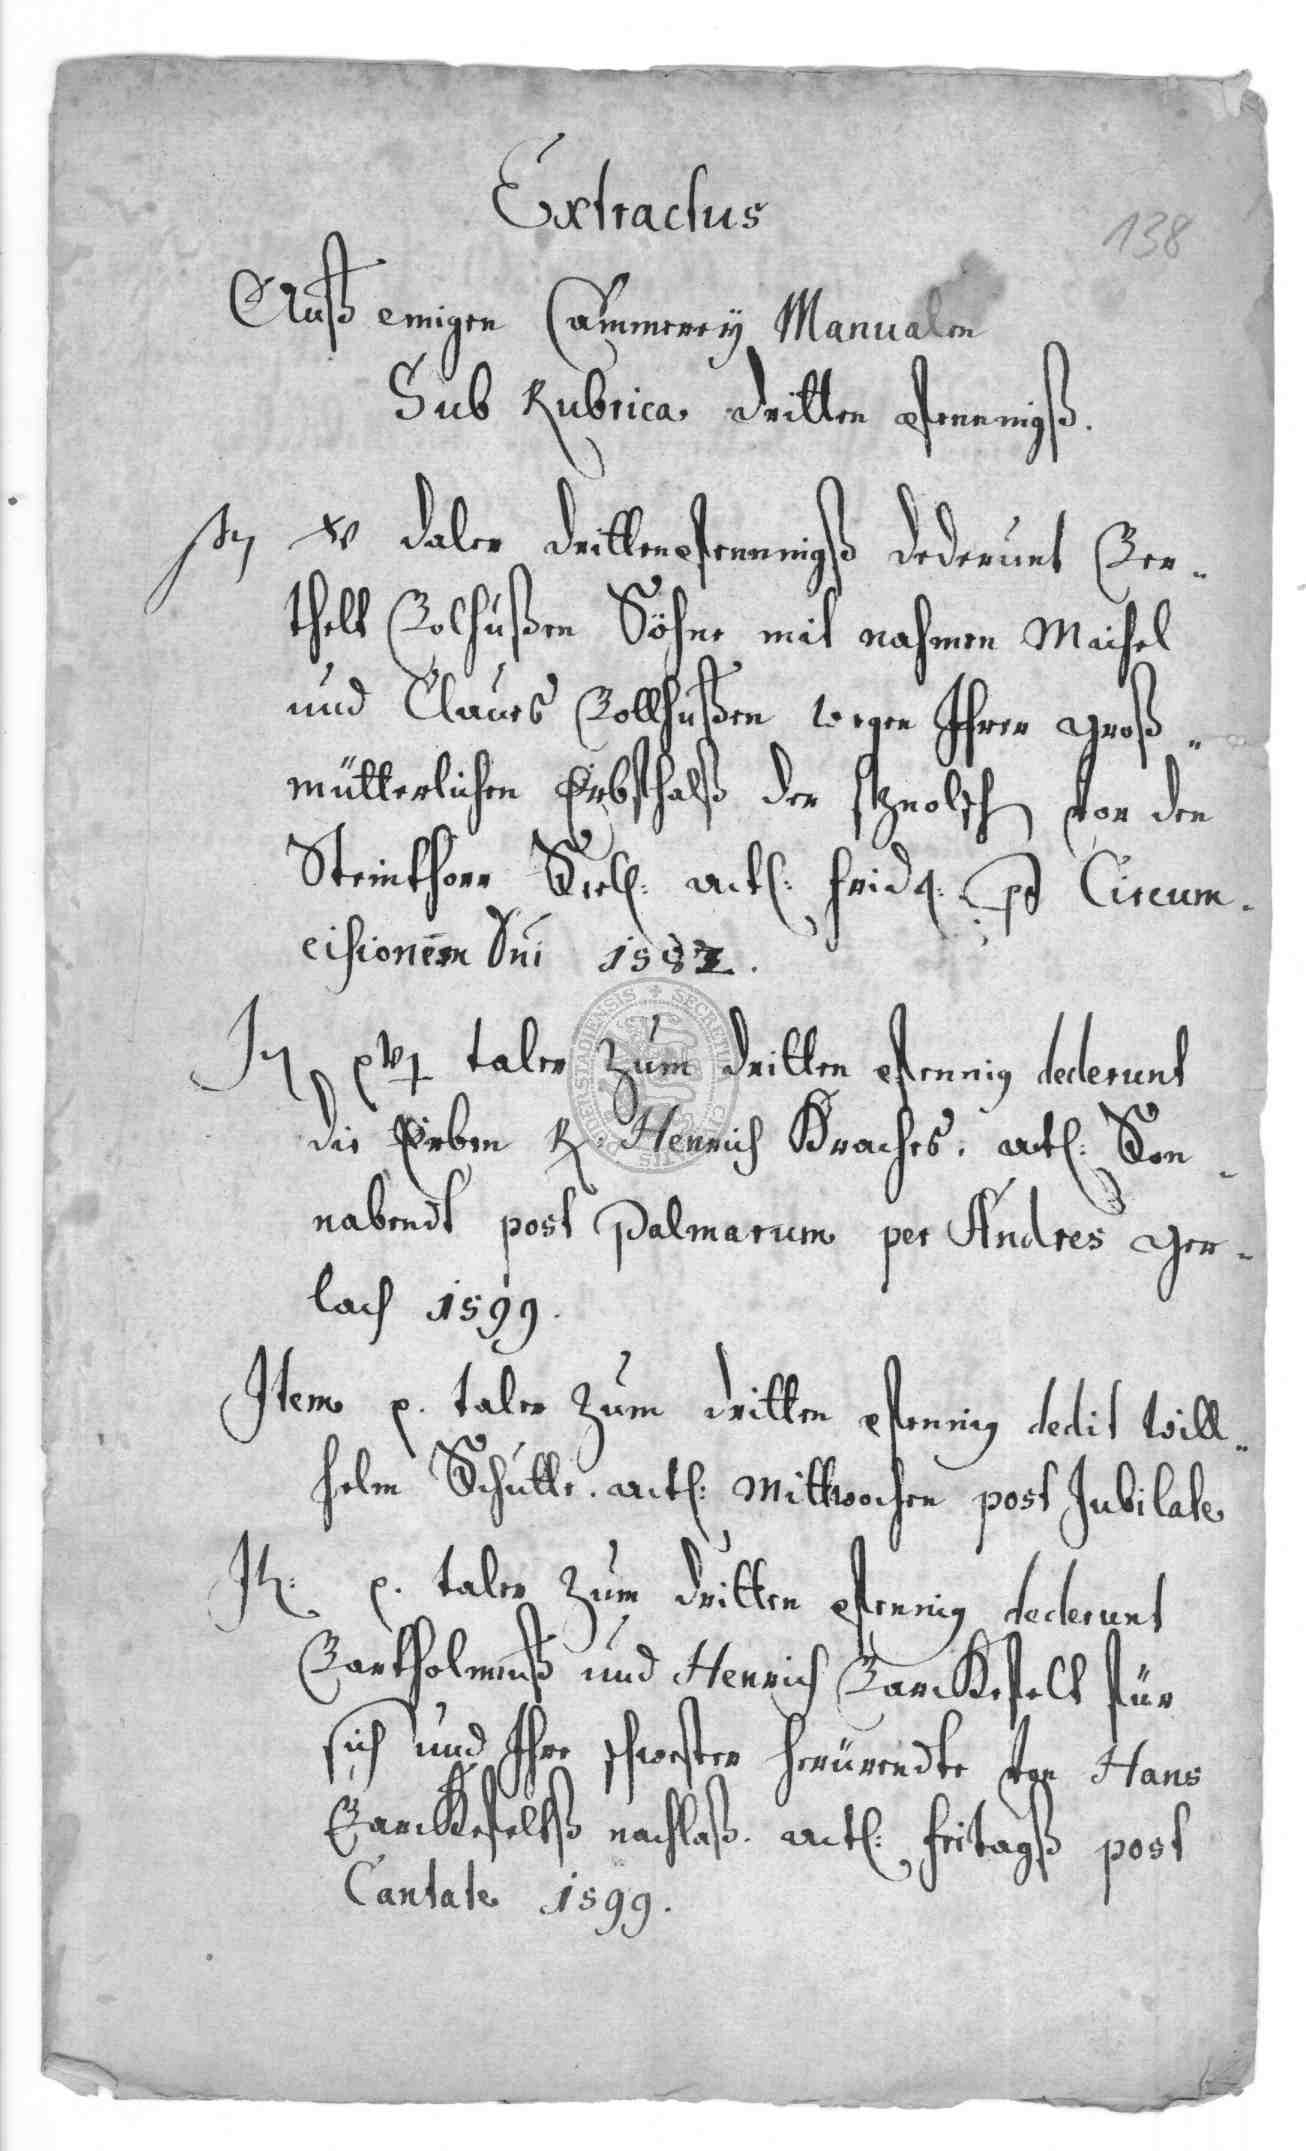 Extractus
138
Auß einigen Cammerey Manualen
Sub Rubrica dritten pfennigß.
It xv daler drittenpfennigß dederunt Ber-
thelt Bolhußen Söhne mit nahmen Michel
und Claues Bollhußen wegen Ihrer groß-
mütterlichen Erbschafft der vor den
Steinthore Seel: act: frid: p Circum-
cisionem Dni 1582.
It xvj taler zum dritten pfennig dederunt
die Erben R: Henrich Kraches. act: Son-
nabendt post Palmarum per Andres Ger-
lach 1599.
Item x. taler zum dritten pfennig dedit Will-
helm Schutte. act: Mittwochen post Jubilate
It: x. taler zum dritten pfennig dederunt
Bartholmeuß und Henrich Barckefelt für
sich und Ihre schwester herürendte von Hans
Barckefeltß nachlaß. act: freitagß post
Cantate 1599.